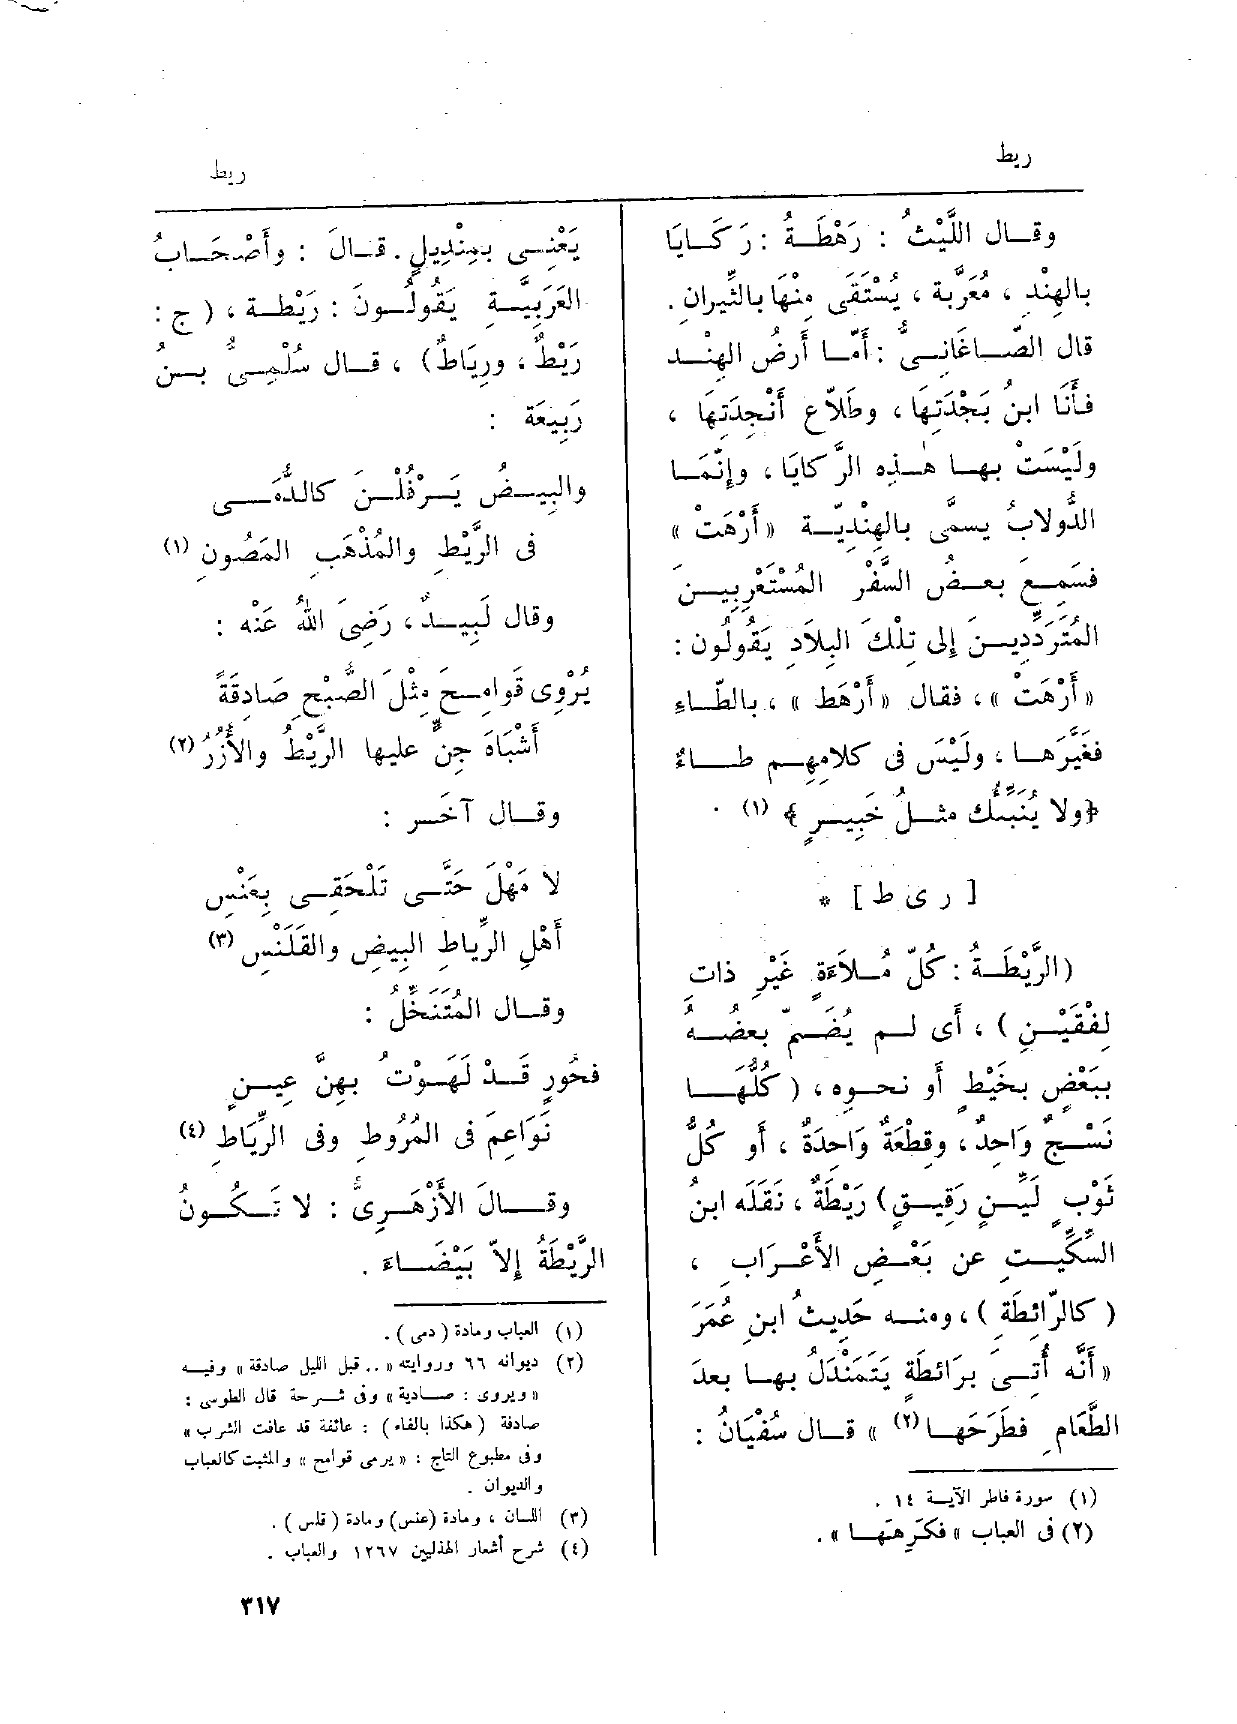 ريط
ريط
وقــال اللَّيْثُ : رَهْطَــةُ : رَكَــايَا
بالهِنْدِ ، مُعَرَّبة ، يُسْتَقَى مِنْهَا بالثِّيرانِ .
قال الصّــاغَانِــىُّ : أَمّــا أَرضُ الهِنْــد
فــأَنَا ابنُ بَجْدَتِهَا ، وطَلاّع أَنْجِدَتِهَا ،
ولَيْسَتْ بهــا هٰــذِه الرَّكايَا ، وإِنَّمَــا
الدُّولابُ يسمَّى بالهِنْدِيّــة «أَرْهَتْ»
فسَمِــعَ بعــضُ السَّفْر المُسْتَعْرِبِيــنَ
المُتَرَدِّدِيــنَ إِلى تِلْكَ البِلاَدِ يَقُولُون :
«أَرْهَتْ» ، فقال «أَرْهَط» ، بالطّــاءِ
فغَيَّرَهــا ، ولَيْسَ فى كلامِهِــم طــاءٌ
﴿ولا يُنَبِّئُك مثــلُ خَبِيــرٍ﴾ (١) .
[ ر ى ط ] *
(الرَّيْطَــةُ : كُلّ مُــلاَءَةٍ غَيْرِ ذات
لِفْقَيْــنِ) ، أَى لــم يُضَمّ بعضُــهُ
بِبَعْضٍ بخَيْطٍ أَو نحــوِه ، (كُلُّهَــا
نَسْــجٌ وَاحِدٌ ، وقِطْعَةٌ وَاحِدَةٌ ، أَو كُلُّ
ثَوْبٍ لَيِّــنٍ رَقِيــقٍ) رَيْطَةٌ ، نَقَلَه ابنُ
السِّكِّيــتِ عن بَعْــضِ الأَعْــرَابِ ،
(كالرّائِطَةِ) ، ومنــه حَدِيثُ ابنِ عُمَرَ
«أَنَّه أُتِــىَ بِرَائطَةٍ يَتَمَنْدَلُ بهــا بعدَ
الطَّعَامِ فطَرَحَهــا (٢)» قــال سُفْيَانُ :
(١) سورة فاطر الآيــة ١٤ .
(٢) فى العباب «فكَرِهَهَــا» .
يَعْنِــى بمِنْدِيلٍ . قــالَ : وأَصْحَــابُ
العَرَبِيَّــةِ يَقُولُــونَ : رَيْطــة ، (ج :
رَيْطٌ ، ورِيَاطٌ) ، قــال سُلْمِــىُّ بــنُ
رَبِيعَة :
والبِيــضُ يَــرْفُلْــنَ كالدُّمَــى
فى الرَّيْطِ والمُذْهَبِ المَصُونِ (١)
وقال لَبِيــدٌ ، رَضِىَ اللهُ عَنْه :
يُرْوِى قَوامِــحَ مِثْلَ الصُّبْحِ صَادِقَةً
أَشْبَاهَ جِنٍّ عليها الرَّيْطُ والأُزُرُ (٢)
وقــال آخَــر :
لا مَهْلَ حَتَّــى تَلْحَقِــى بِعَنْسِ
أَهْلِ الرِّياطِ البِيضِ والقَلَنْسِ (٣)
وقــال المُتَنَخِّلُ :
فحُورٍ قَــدْ لَهَــوْتُ بِهِنَّ عِيــنٍ
نَوَاعِمَ فى المُرُوطِ وفى الرِّيَاطِ (٤)
وقــــالَ الأَزْهَــرِىُّ : لا تَــكُــونُ
الرَّيْطَةُ إِلاّ بَيْضَــاءَ .
(١) العباب ومادة (دمى) .
(٢) ديوانه ٦٦ وروايته «.. قبل الليل صادقة» وفيــه
«ويروى : صــادية» وفى شــرحة قال الطوسى :
صادفة (هكذا بالفاء) : عائفة قد عافت الشرب»
وفى مطبوع التاج : «يرمى قوامح» والمثبت كالعباب
والديوان .
(٣) اللسان ، ومادة (عنس) ومادة (قلس) .
(٤) شرح أشعار الهذليين ١٢٦٧ والعباب .
٣١٧